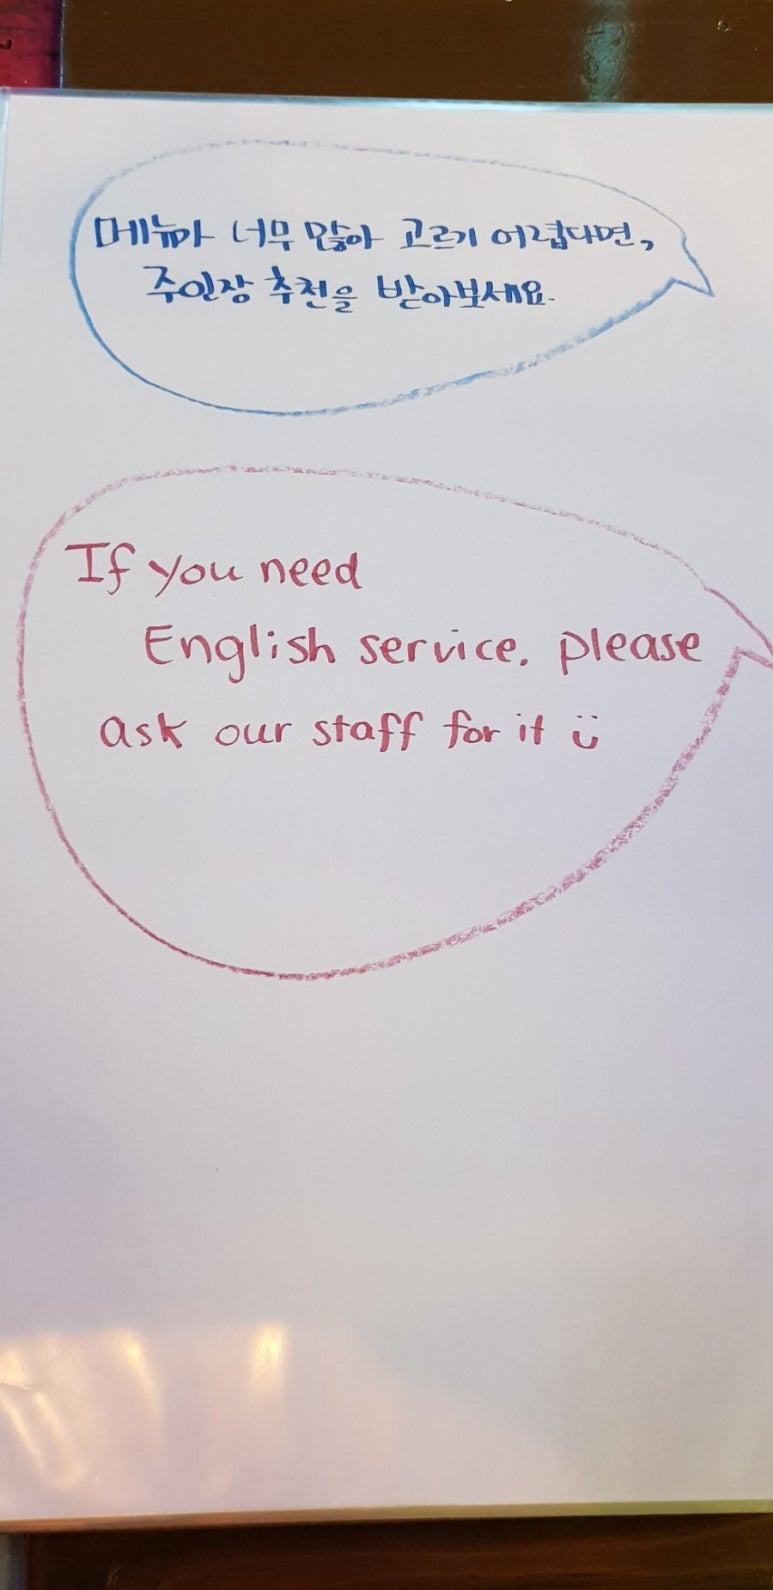 메뉴가 너무 많아 고르기 어렵다면,
주인장 추천을 받아보세요.
If you need
English service, please
ask our staff for it ü